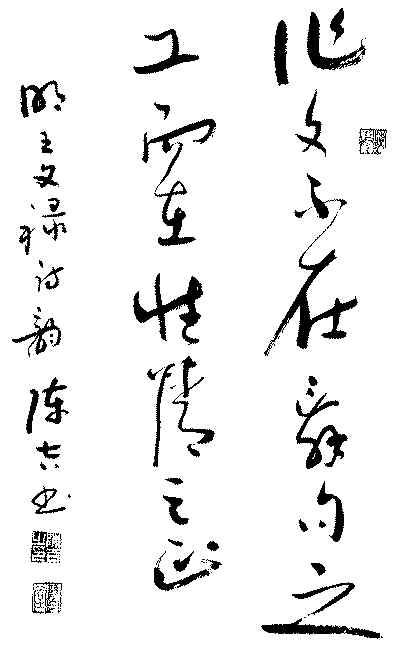 作文不在辞句之
工而在性情之正
明王文禄诗韵 陈吉书